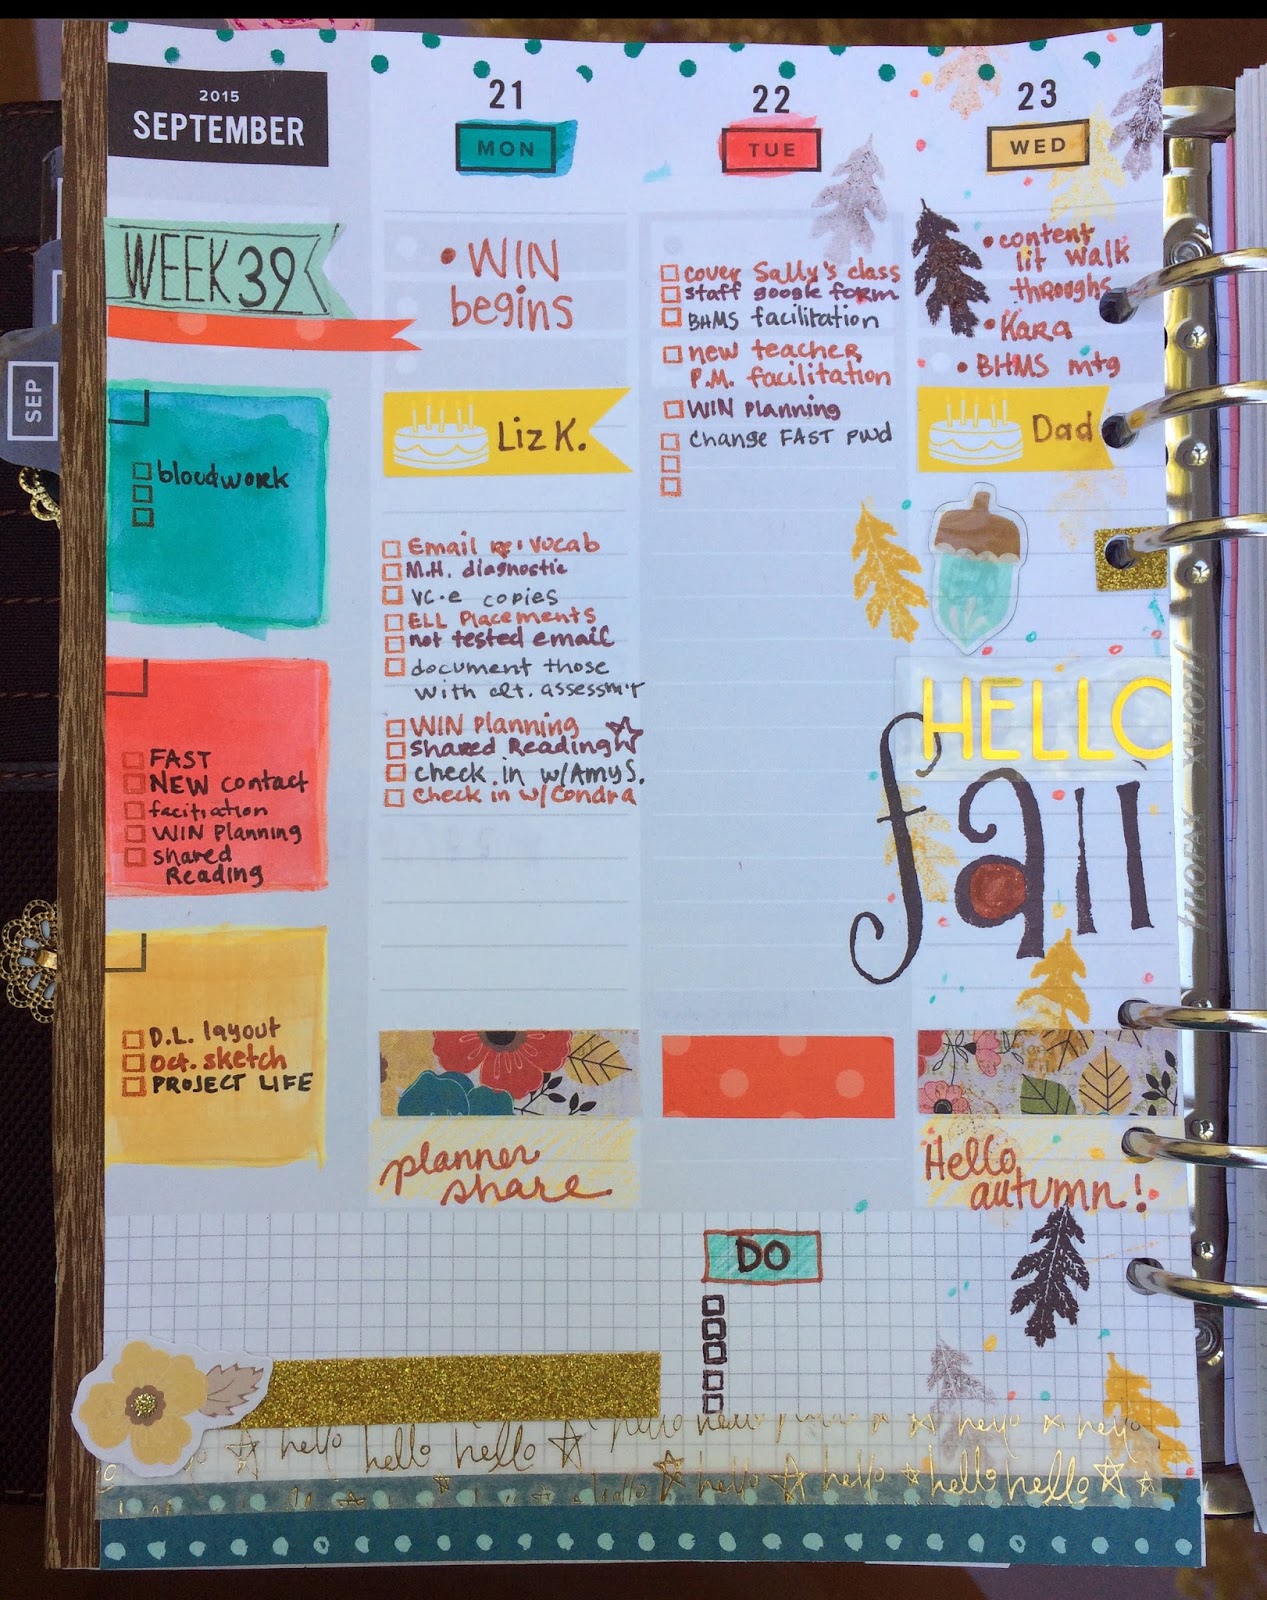 2015
SEPTEMBER
21
MON
22
TUE
23
WED
WEEK 39
SEP
bloodwork
FAST
NEW contact
WIN Planning
shared
Reading
D.L. layout
Oct. sketch
PROJECT LIFE
• WIN
begins
Liz K.
Email re: vocab
M.H. diagnostic
copies
ELL Placements
not tested email
document those
with alt. assessm't
WIN Planning
Shared Reading
check in w/Amy S.
check in w/Condra
planner
share
cover Sally's class
staff google form
BHMS facilitation
new teacher
P.M. facilitation
WIN Planning
change FAST pwd
• content
lit walk
throughs
• Kara
• BHMS mtg
Dad
HELLO
fall
Hello
autumn!
DO
hello hello hello
hello hello hello hello